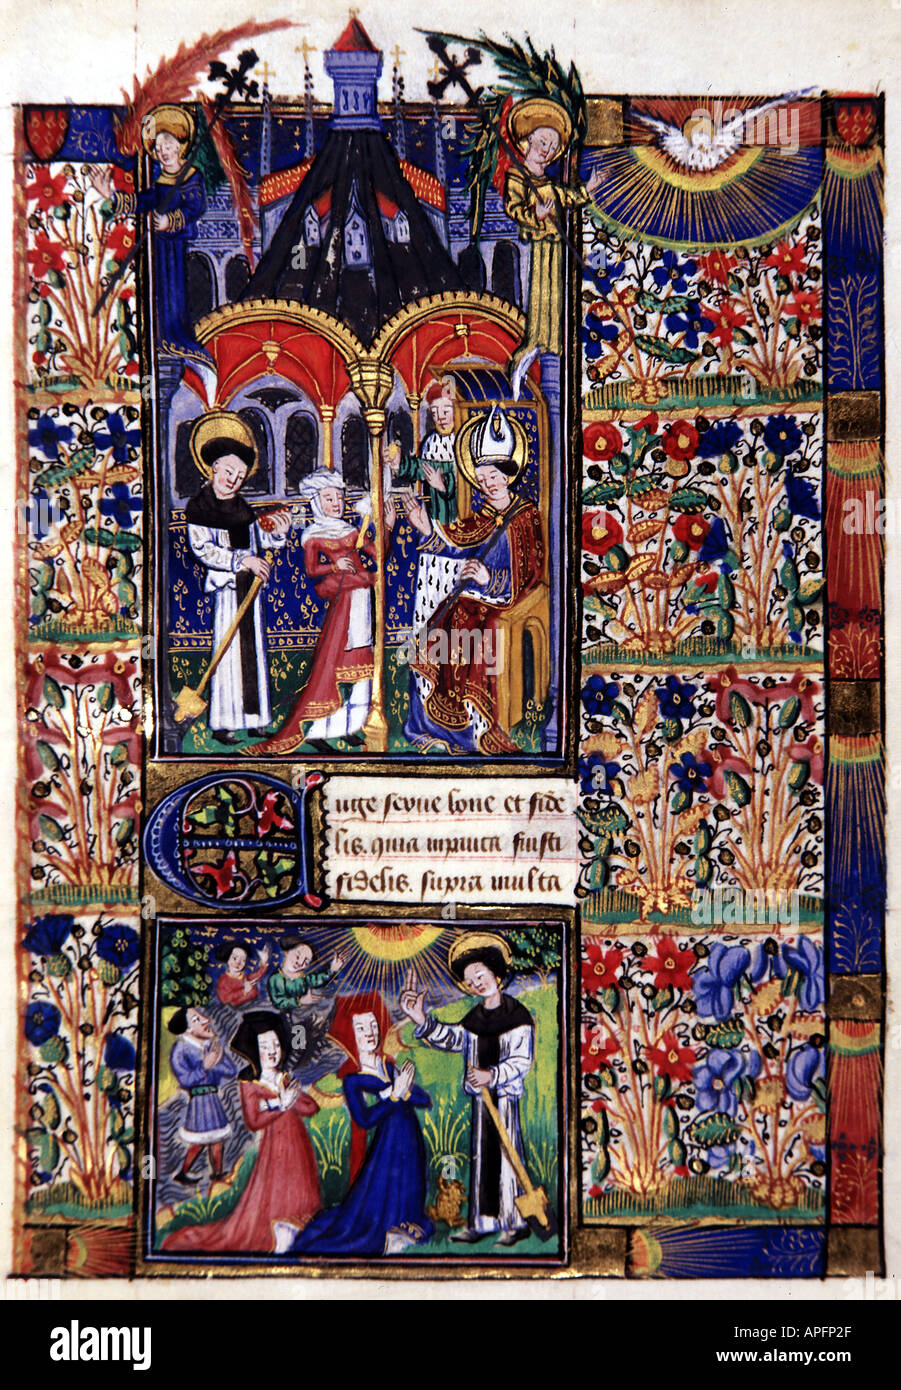 Euge serve bone et fide
lis. quia in pauca fuisti
fidelis. supra multa
alamy
Image ID: APFP2F
www.alamy.com